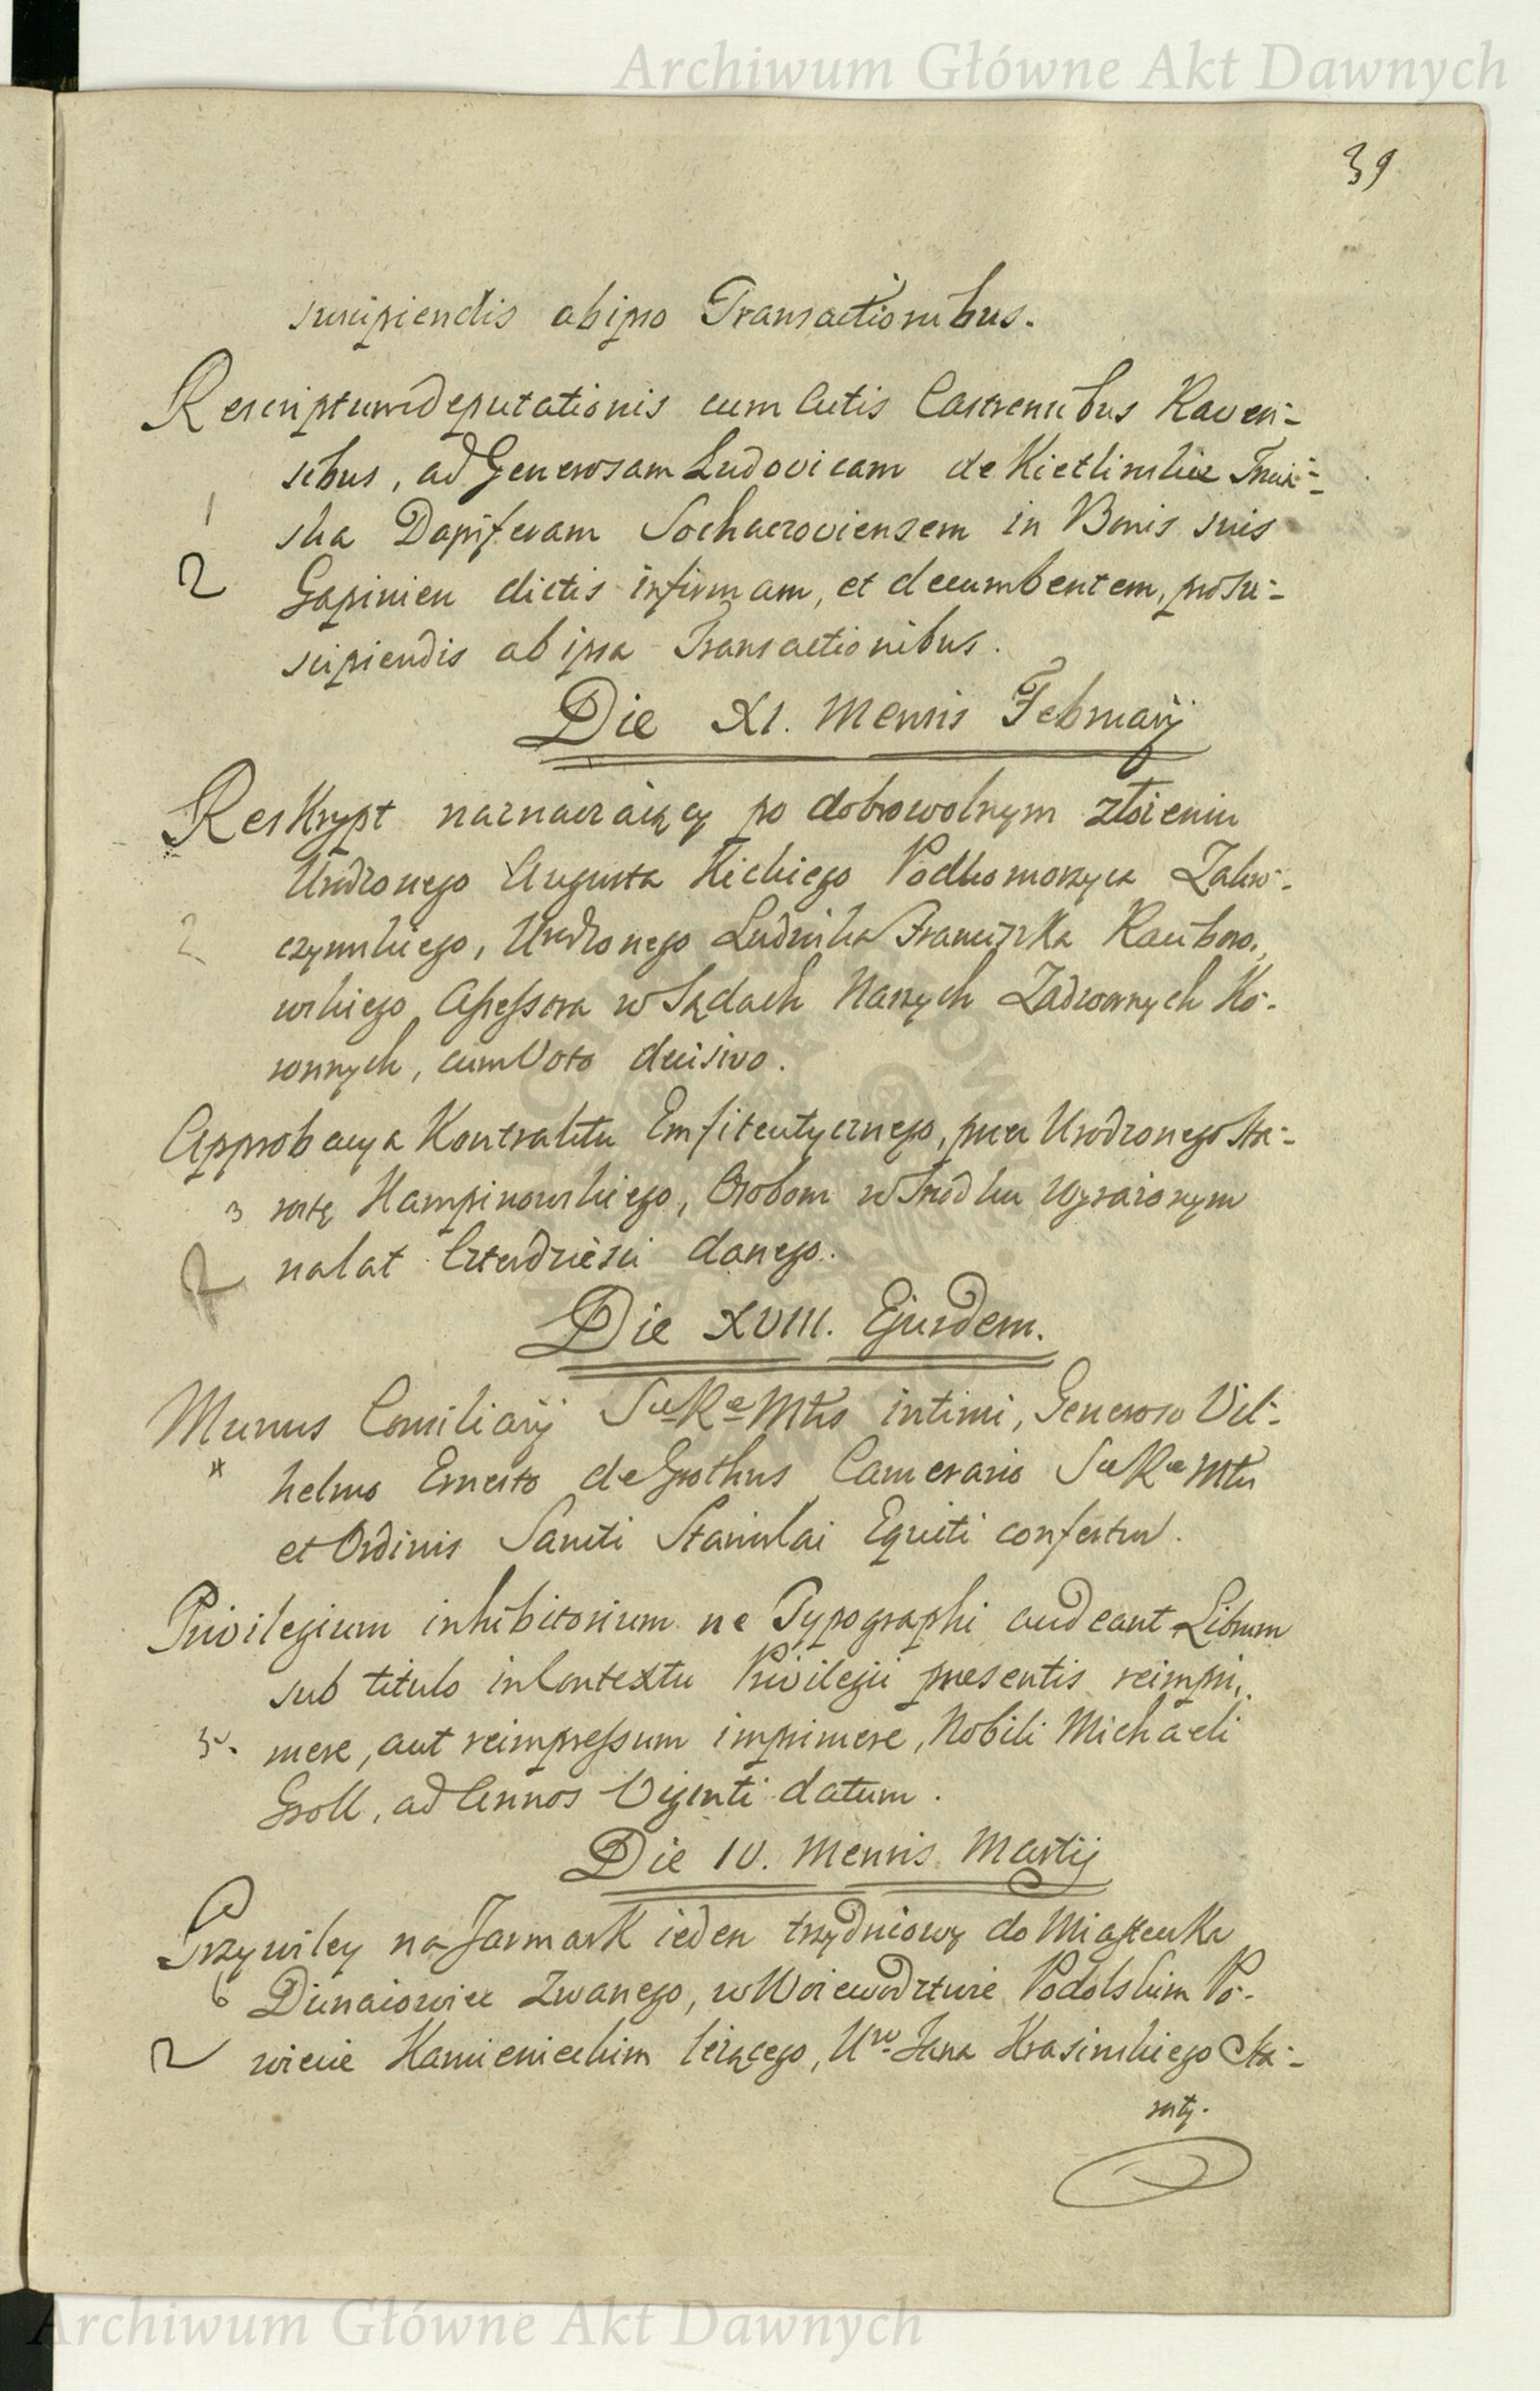 Archiwum Główne Akt Dawnych
39
suscipiendis ab ipso Transactionibus.
Rescriptum deputationis cum Actis Castrensibus Raven-
sibus, ad Generosam Ludovicam de Kietlinskie
1
ska Dapiferam Sochaczoviensem in Bonis suis
2 Gapinien dictis infirmam, et decumbentem, pro su-
scipiendis ab ipsa Transactionibus.
Die XI. Mensis Februarij
Reskrypt naznaczaiący po dobrowolnym złożeniu
Urodzonego Augusta Kickiego Podkomorzyca Zakro-
2 czymskiego, Urodzonego Ludwika Franciszka
wskiego Assessora w Sądach Naszych Zadwornych Ko-
ronnych, cum Voto decisivo.
Approbacya Kontraktu Emfiteutycznego, przez Urodzonego Sta-
3 rostę Kampinowskiego, Osobom w Srodku Wyrażonym
na lat Czterdzieści danego.
Die XVIII. Ejusdem.
Munus Consiliarij Sae Rae Mtis intimi, Generoso Vil-
* helmo Ernesto de Grothus Camerario Sae Rae Mtis
et Ordinis Sancti Stanislai Equiti confertur.
Privilegium inhibitorium ne Typographi audeant Librum
sub titulo in Contextu Privilegii praesentis reimpri-
mere, aut reimpressum imprimere, Nobili Michaeli
Groll, ad Annos Viginti datum.
Die IV. Mensis Martij
Przywiley na Jarmark ieden trzydniowy do Miasteczka
6 Dunaiowiec Zwanego, w Woiewodztwie Podolskim Po-
2 wiecie Kamienieckim leżącego, Uro Jana Krasinskiego Sta-
rosty.
Archiwum Główne Akt Dawnych